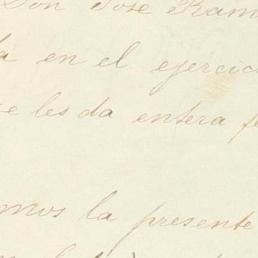 Don José Ram
a en el ejercic
e les da entera fe
mos la presente